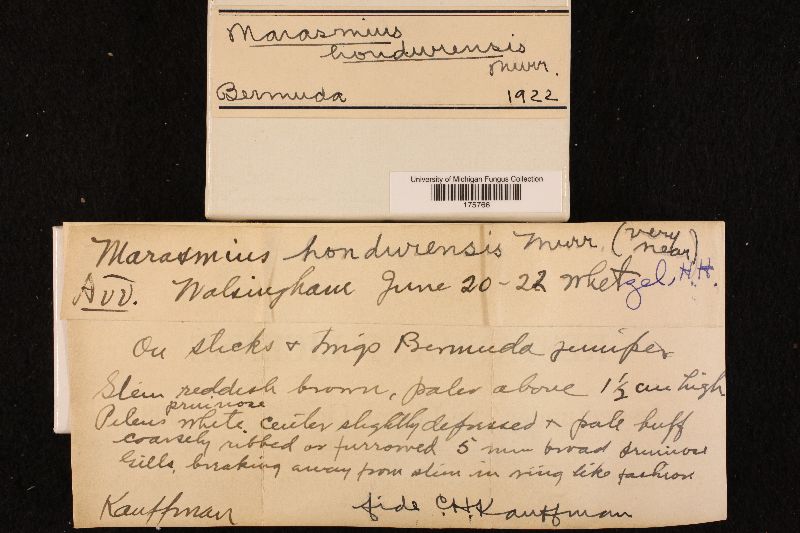 Marasmius
hondurensis
Murr.
Bermuda 1922
University of Michigan Fungus Collection
175766
Marasmius hondurensis Murr. (very near)
Walsingham June 20-22 Whetzel, H.H.
On sticks & twigs Bermuda juniper
Stem reddish brown, paler above 1 1/2 cm high
pruinose
Pileus white. center slightly depressed & pale buff
coarsely ribbed or furrowed 5 mm broad pruinose
Gills, breaking away from stem in ring like fashion
Kauffman fide C.H. Kauffman